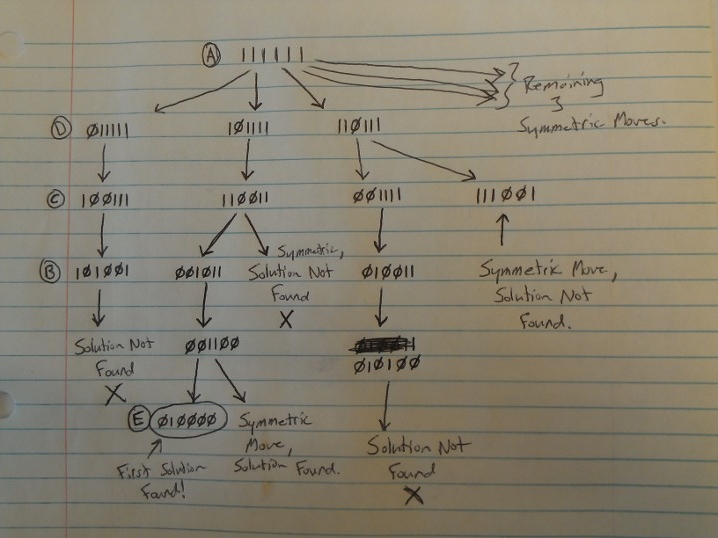 Ⓐ 111111
Remaining
Symmetric Moves.
Ⓓ Ø11111 1Ø1111 11Ø111
Ⓒ 1ØØ111 11ØØ11 ØØ1111 111ØØ1
Ⓑ 1Ø1ØØ1 ØØ1Ø11 Symmetric, Solution Not Found X Ø1ØØ11 Symmetric Move,
Solution Not
Found.
Solution Not
Found
X
ØØ11ØØ
Ø1Ø1ØØ
Ⓔ Ø1ØØØØ
Symmetric
Move,
Solution Found.
First Solution
Found!
Solution Not
Found
X